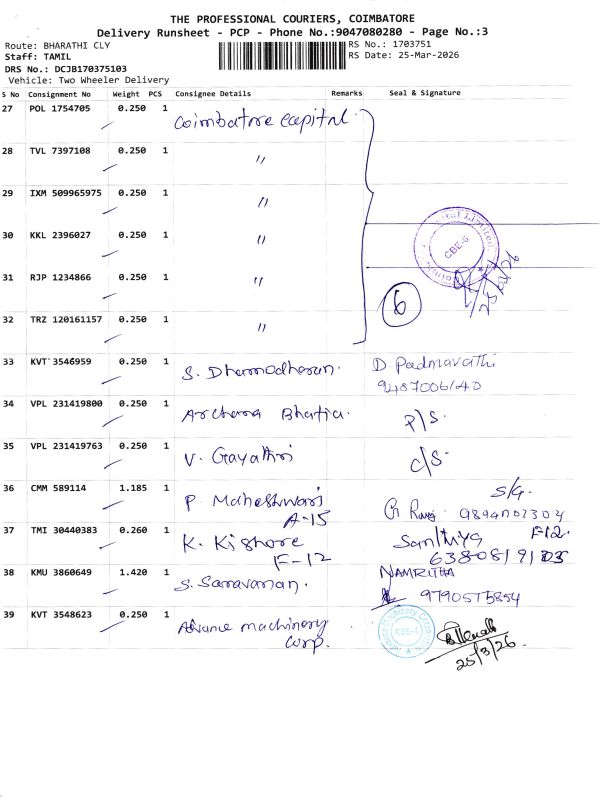 THE PROFESSIONAL COURIERS, COIMBATORE
Delivery Runsheet - PCP - Phone No.:9047080280 - Page No.:3
Route: BHARATHI CLY
RS No.: 1703751
Staff: TAMIL
RS Date: 25-Mar-2026
DRS No.: DCJB170375103
Vehicle: Two Wheeler Delivery
S No Consignment No Weight PCS Consignee Details Remarks Seal & Signature
27 POL 1754705 0.250 1 Coimbatore Capital.
28 TVL 7397108 0.250 1 "
29 IXM 509965975 0.250 1 "
30 KKL 2396027 0.250 1 "
CBE-6
31 RJP 1234866 0.250 1 "
6
32 TRZ 120161157 0.250 1 "
33 KVT 3546959 0.250 1 S. Dharmodharan. D. Padmavathi
9487006140
34 VPL 231419800 0.250 1 Archana Bhatia. P/S.
35 VPL 231419763 0.250 1 V. Gayathri C/S.
36 CMM 589114 1.185 1 P. Maheshwari S/G.
A-15
37 TMI 30440383 0.260 1 K. Kishore Santhiya F12.
F-12
38 KMU 3860649 1.420 1 S. Saravanan. NAMRITHA
39 KVT 3548623 0.250 1 Advance machinery
Corp.
25/3/26.